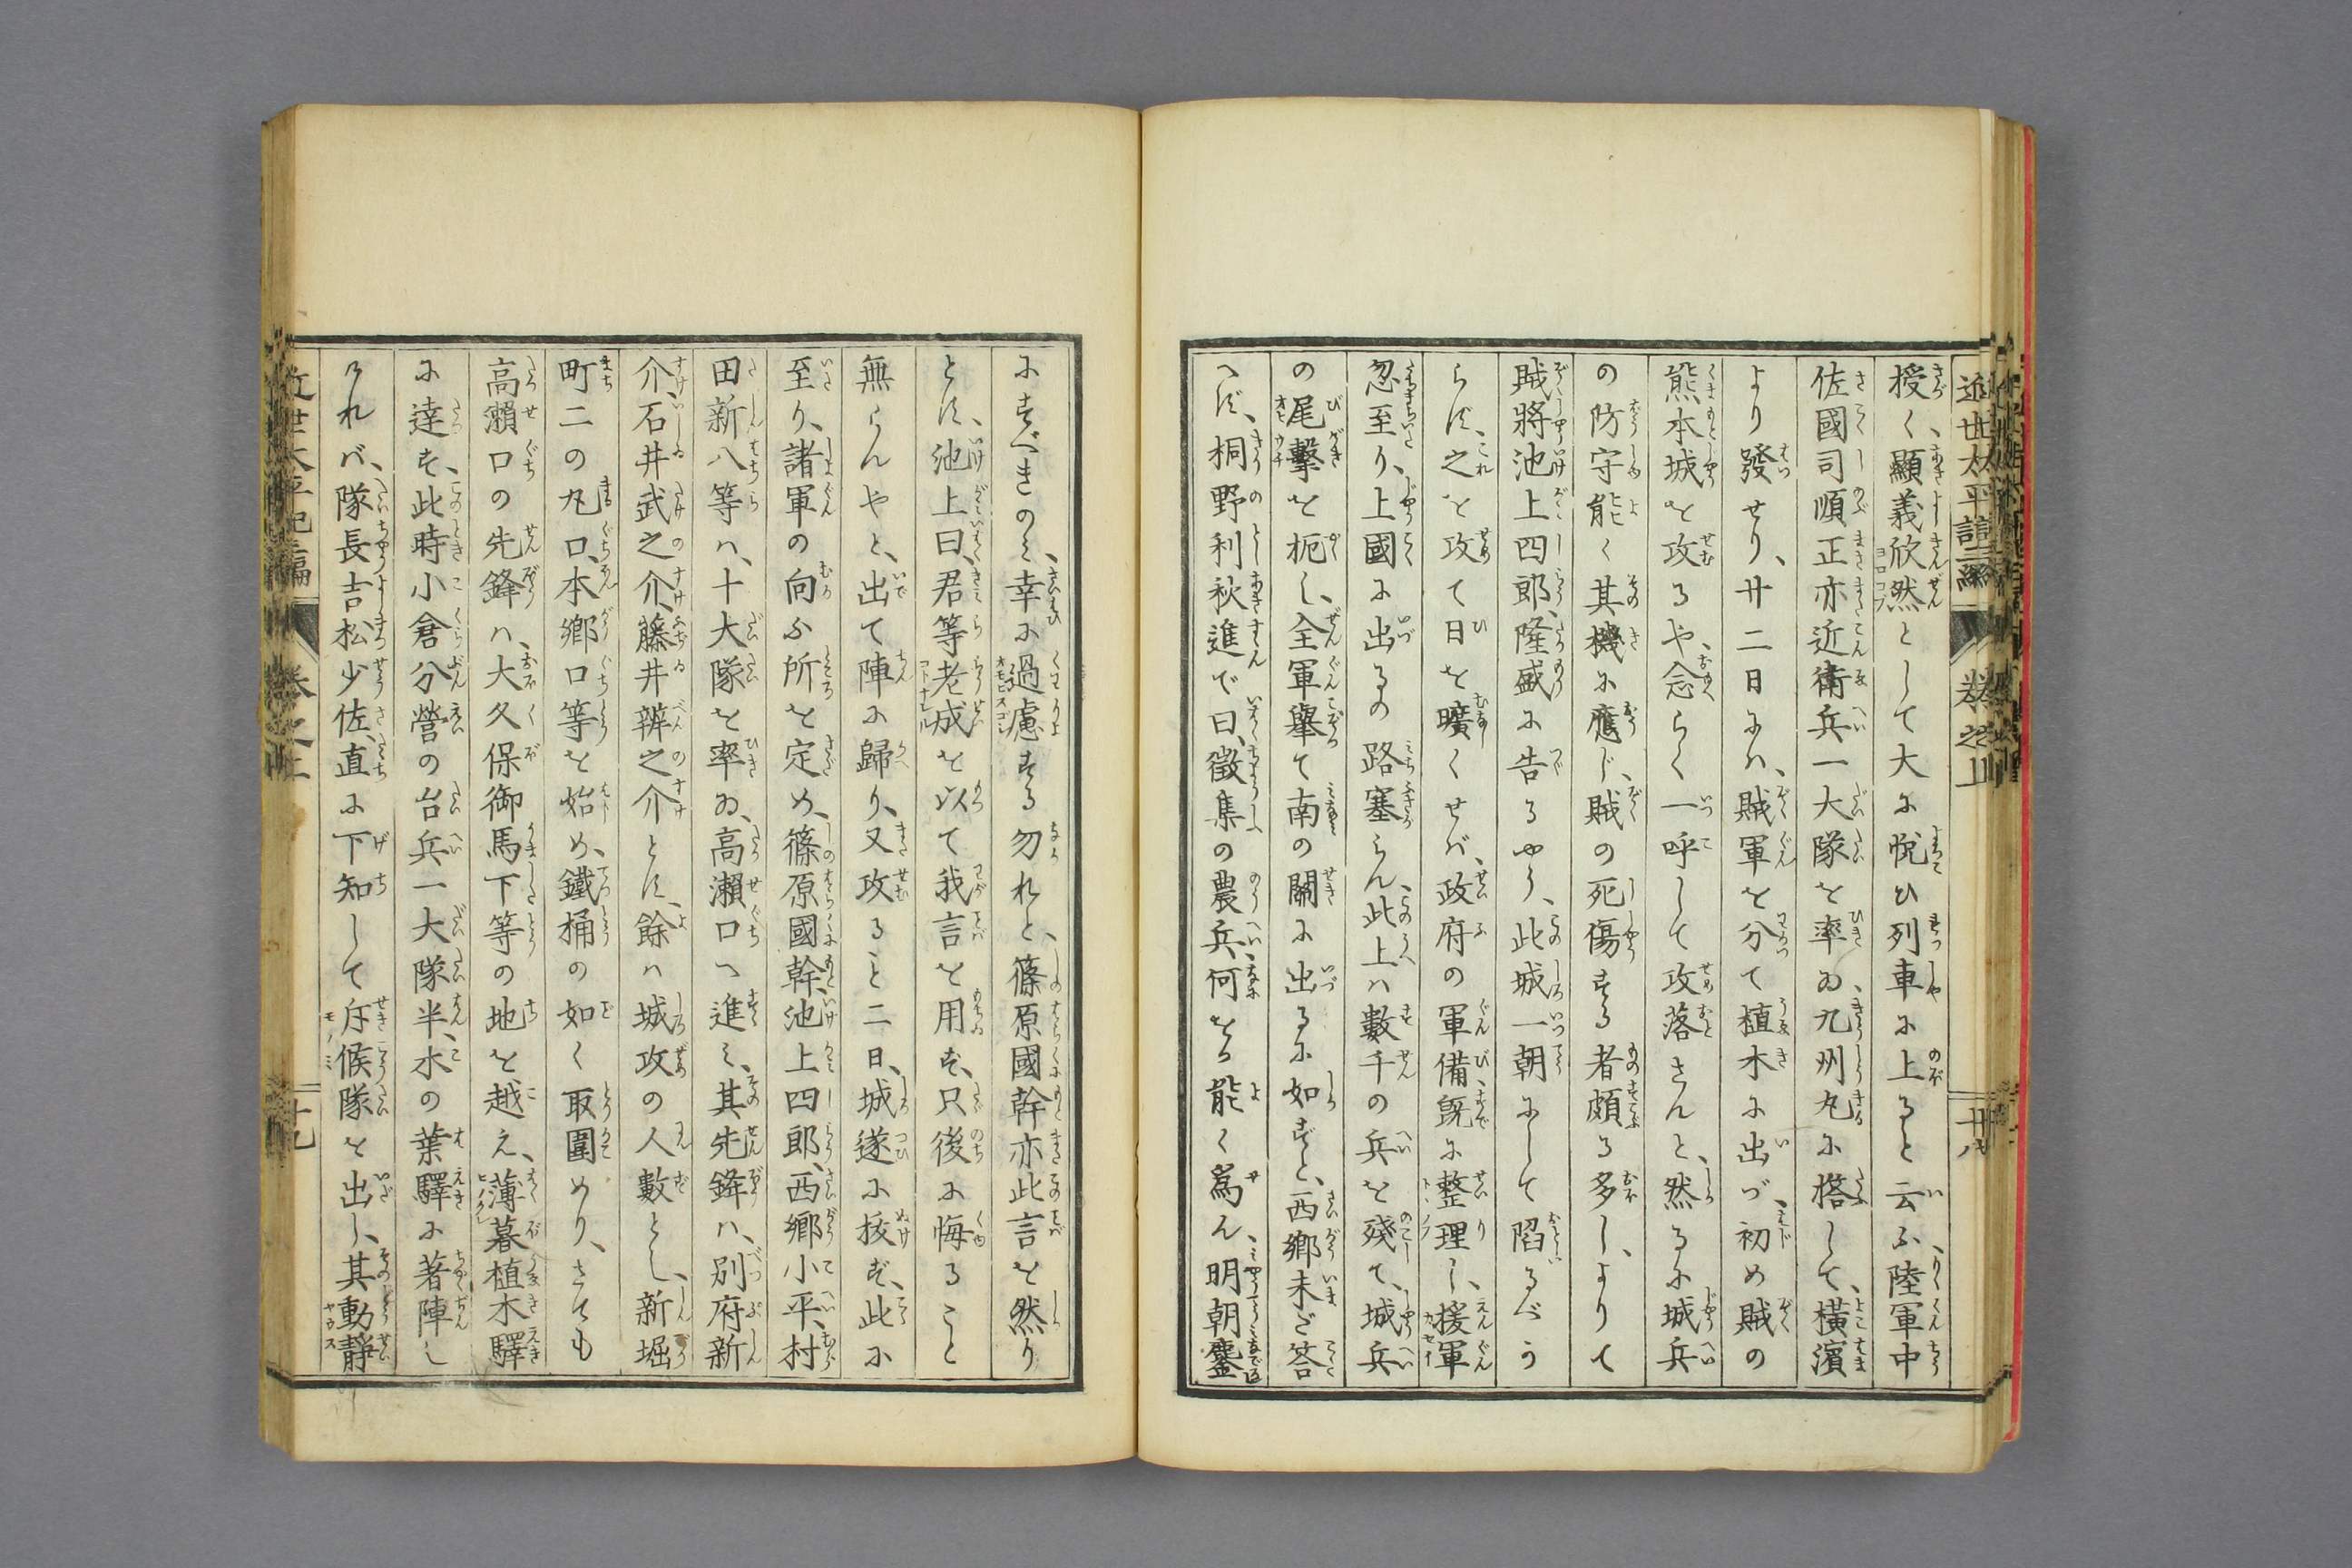 授く、顯義欣然として大に悦び列車に上ると云ふ、陸軍中
佐國司順正亦近衛兵一大隊を率ゐ、九州丸に搭して、横濱
より發せり、廿二日にハ、賊軍を分て植木に出づ、初め賊の
熊本城を攻るや、念らく一呼して攻落さんと、然るに城兵
の防守能く其機に應じ、賊の死傷する者頗る多し、よりて
賊將池上四郎、隆盛に告るやう、此城一朝にして陷るべか
らず、之を攻て日を曠くせバ、政府の軍備、既に整理し、援軍
忽至り、上國に出るの路塞らん、此上ハ數千の兵を殘て、城兵
の尾擊を扼し、全軍擧て南の關に出るに如ずと、西鄕未ご答
へず、桐野利秋進で曰、徵集の農兵、何をか能く爲ん、明朝鏖
にすべきのミ、幸に過慮する勿れと、篠原國幹亦此言を然り
とす、池上曰、君等老成を以て我言を用ず、只後に悔ること
無らんやと、出て陣に歸り、又攻ること二日、城遂に拔ず、此に
至り、諸軍の向ふ所を定め、篠原國幹、池上四郎、西鄕小平、村
田新八等ハ、十大隊を率ゐ、高瀨口へ進ミ、其先鋒ハ、別府新
介、石井武之介、藤井辨之介とす、餘ハ城攻の人數とし、新堀
町二の丸口、本鄕口等を始め、鐵桶の如く取圍めり、さても
高瀨口の先鋒ハ、大久保御馬下等の地を越え、薄暮植木驛
に達す、此時小倉分營の台兵一大隊半、木の葉驛に著陣し
けれバ、隊長吉松少佐、直に下知して斥候隊を出し、其動靜
近世太平記三編
卷之上
十九